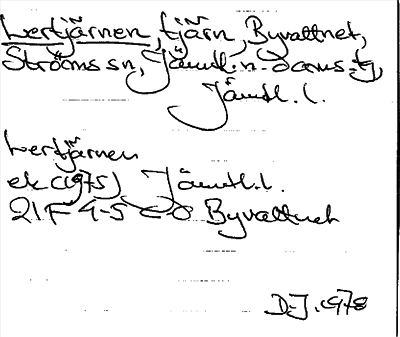 Lertjärnen, tjärn, Byvattnet,
Ströms sn, Jämtl:n. Doms-tj,
Jämtl. l.
Lertjärnen
ek (1975) Jämtl. l.
21F 4-5 c-d Byvattnet
D.J. 1978